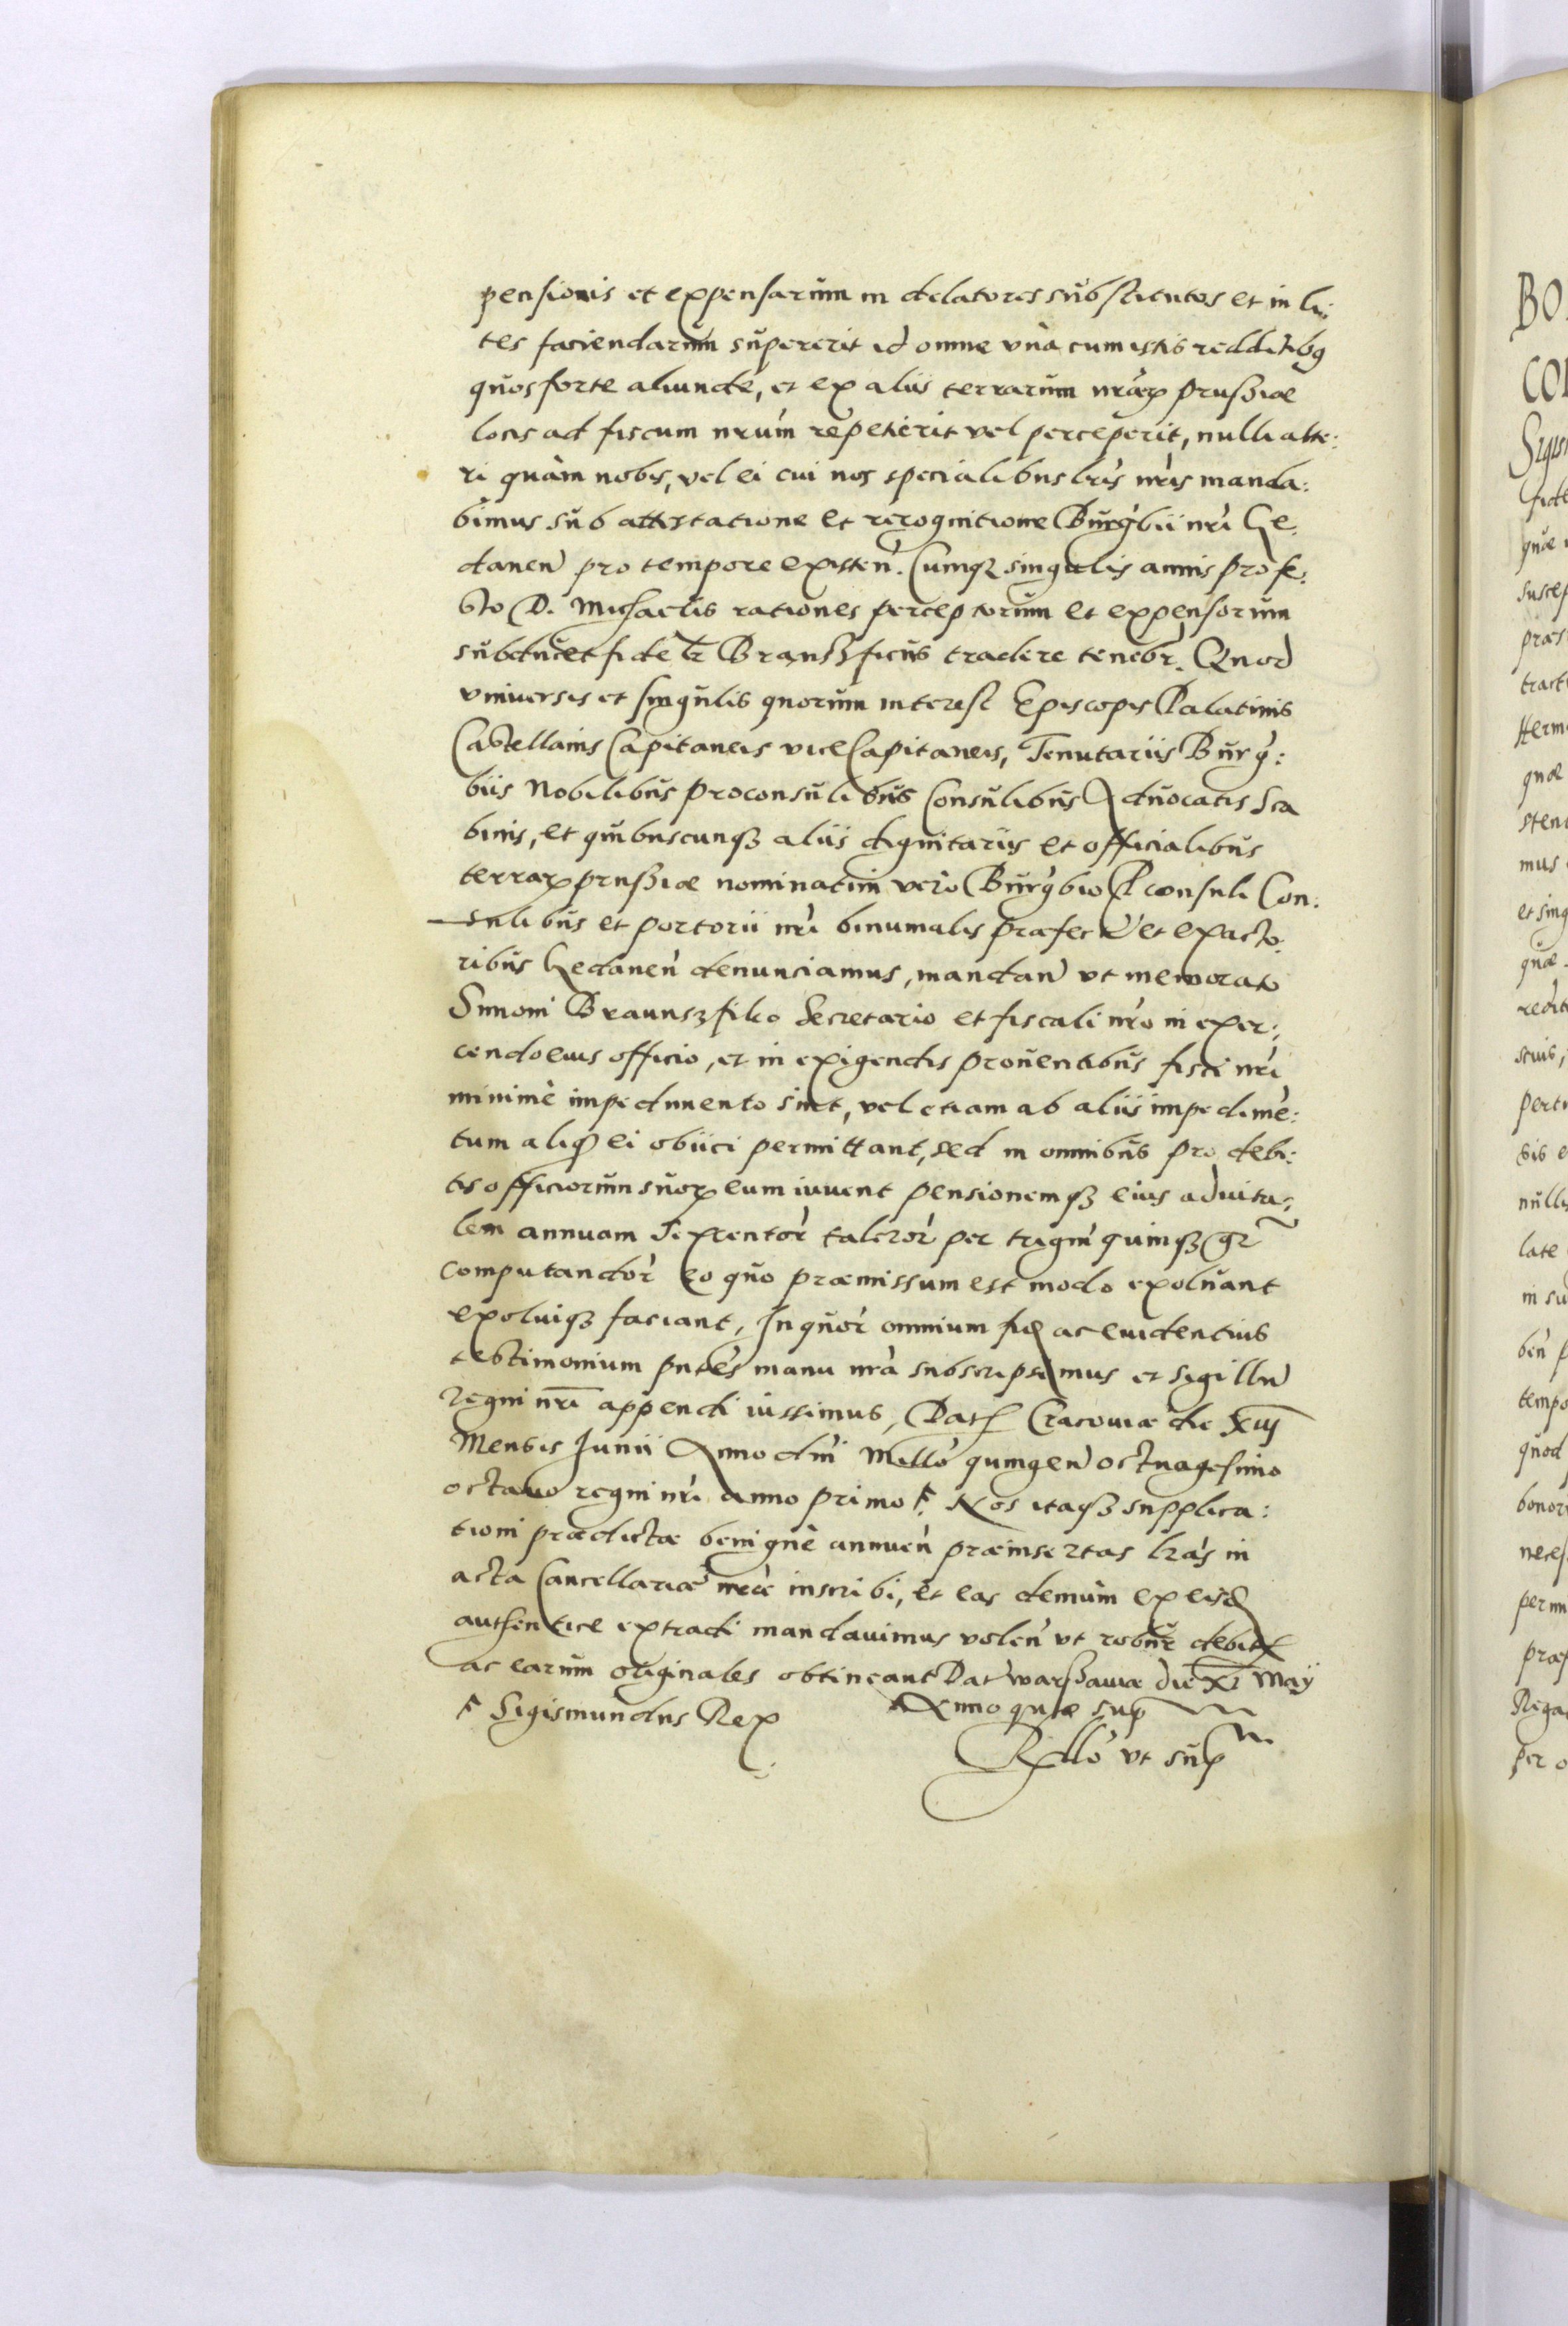 pensionis et expensarum in delatores substitutos et in li:
tes faciendarum supererit id omne vnà cum istis redditibq
quos forte aliunde, et ex aliis terrarum nrãrp prussiae
locis ad fiscum nrum repetierit vel perceperit, nulli alte:
ri quàm nobis, vel ei cui nos specialibus lris nris manda:
bimus sub attestatione et recognitione Burgbii nri Ge:
danen pro tempore existen. Cumq singulis annis pro fe:
sto D. Michaelis rationes perceptorum et expensorum
subducet fidelr Bransficus tradere tenebr. Quod
vniuersis et singulis quorum interest Episcopis Palatinis
Castellanis Capitaneis viceCapitaneis, Tenutariis Burg:
biis Nobilibus proconsulibus Consulibus Aduocatis Sca
binis, et quibuscunq aliis dignitariis et officialibus
terrarp prussiae nominatim verò Burgbio Pconsuli Con:
sulibus et portorii nri binumalis praefec et exacto:
ribus Gedanen denunciamus, mandan vt memorato
Simoni Braunszfiko Secretario et fiscali nro in exer:
cendo eius officio, et in exigendis prouentibus fisci nri
minimè impedimento sint, vel etiam ab aliis impedimẽ:
tum aliq ei obiici permittant, sed in omnibus pro debi:
tis officiorum suorp eum iuuent pensionemq eius aduita:
lem annuam Texcentor taleror per trigin quinq gr
computandor eo quo praemissum est modo exoluant
exoluiq faciant, In quor omnium fid ac euidentius
testimonium pntes manu nra subscripsimus et sigillu
regni nri appendi iussimus, Dat Cracouiae die xiij
Mensis Junii Anno dni Millo quingen octuagesimo
octauo regni nri anno primo. Nos itaq supplica:
tioni praedictae benignè annuen praeinsertas lras in
acta Cancellariae nrae inscribi, et eas demùm ex eisd
authentice extradi mandauimus volen vt robur debit
ac earum originales obtineant Dat warssauiae die xi Maij
Sigismundus Rex Anno quo sup
Rllo vt sup
BO
CO
Sigis
fide
quae
suscep
praes
tract
Herm
quae
sten
mus
et sing
quae
redit
siuis,
perti
sis e
null
late
in su
ben p
tempo
quod
bonor
neces
permi
praes
Rega
per o